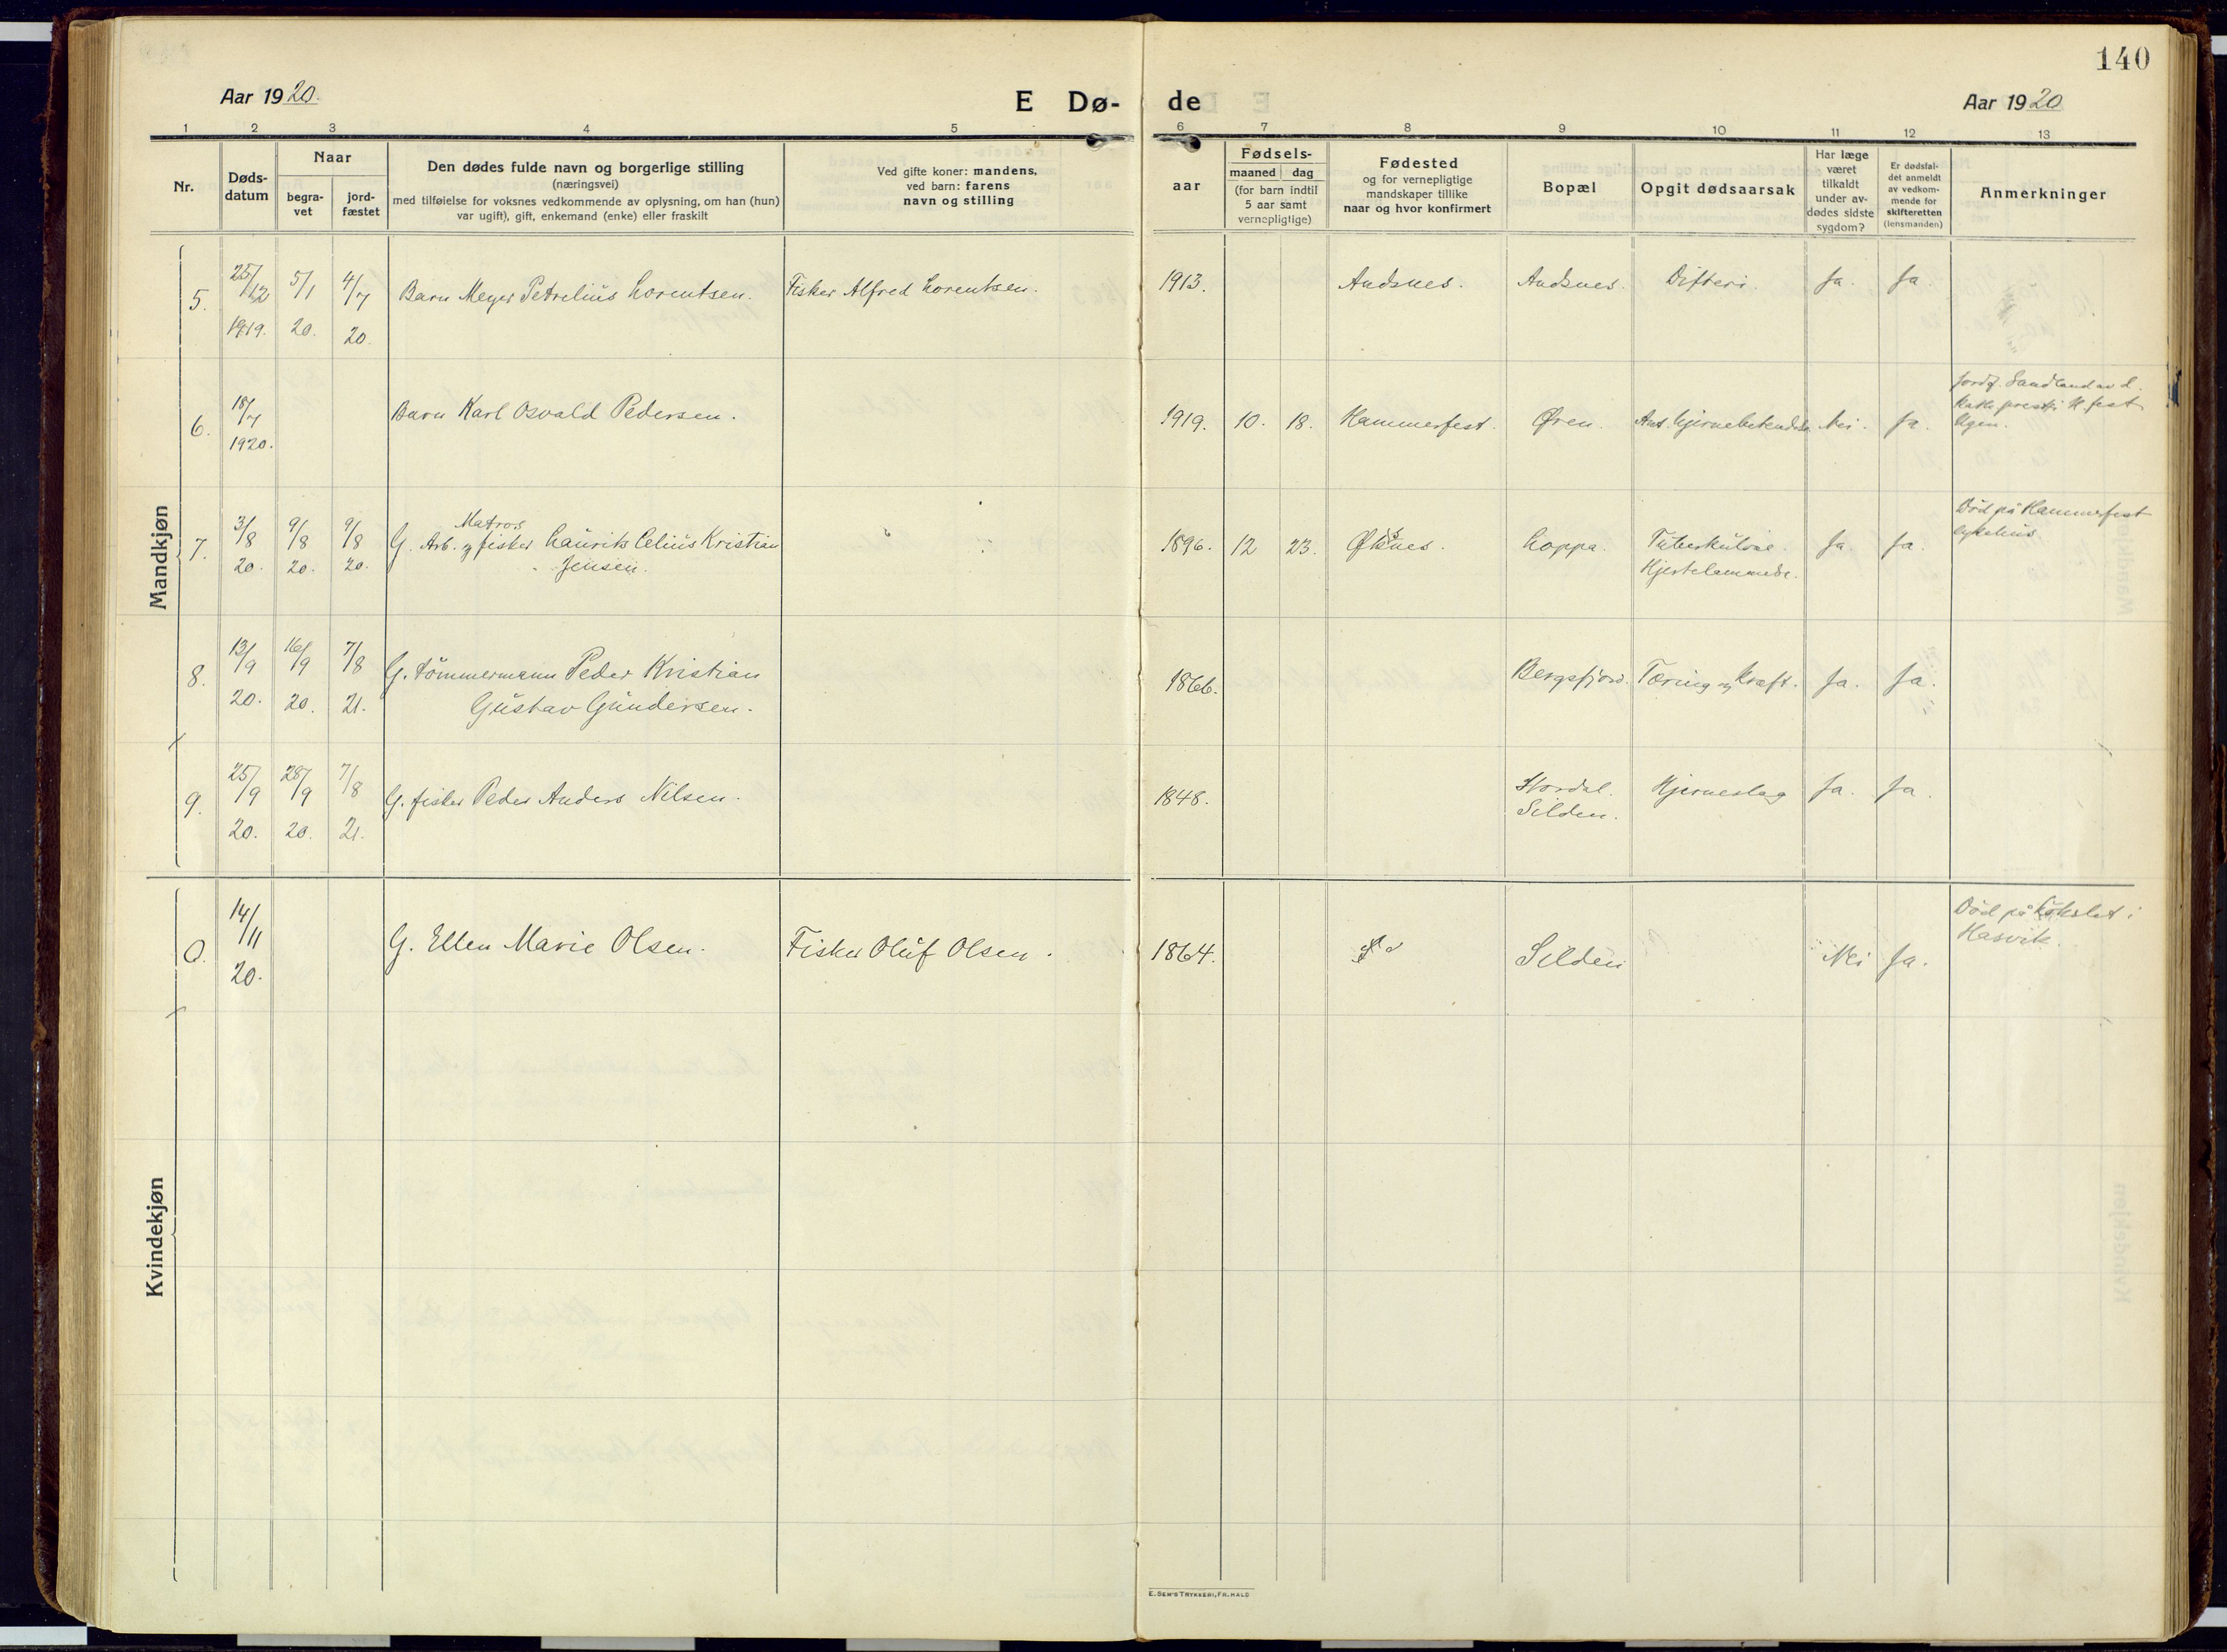 140
Aar 1920.
E Dø-
de
Aar 1920
1 2 3 4 5 6 7 8 9 10 11 12 13
Nr.
Døds-
datum
Naar
begra-
vet
jord-
fæstet
Den dødes fulde navn og borgerlige stilling
(næringsvei)
med tilføielse for voksnes vedkommende av oplysning, om han (hun)
var ugift), gift, enkemand (enke) eller fraskilt
Ved gifte koner: mandens,
ved barn: farens
navn og stilling
aar
Fødsels-
maaned dag
(for barn indtil
5 aar samt
vernepligtige)
Fødested
og for vernepligtige
mandskaper tillike
naar og hvor konfirmert
Bopæl
Opgit dødsaarsak
Har læge
været
tilkaldt
under av-
dødes sidste
sygdom?
Er dødsfal-
det anmeldt
av vedkom-
mende for
skifteretten
(lensmanden)
Anmerkninger
Mandkjøn
5. 25/12 5/1 4/7 Barn Meyer Petrelius Lorentsen. Fisker Alfred Lorentsen. 1913. Andsnes. Andsnes. Difteri. Ja. Ja.
1919. 20. 20
6. 18/7 Barn Karl Osvald Pedersen. 1919. 10. 18. Hammerfest. Øren. Ant. hjernebetendelse Nei. Ja.
1920.
Jordf. Sandland av d.
kath. prest i H.fest
Matros
7. 3/8 9/8 9/8 G. Arb. og fisker Laurits Celius Kristian 1896. 12 23. Øksnes. Loppa. Tuberkulose. Ja. Ja.
20. 20. 20. Jensen. Hjertelammelse.
Død på Hammerfest
sykehus.
8. 13/9 16/9 7/8 G. tömmermann Peder Kristian 1866. Bergsfjord. Tæring og Kræft. Ja. Ja.
20. 20. 21. Gustav Gundersen.
9. 25/9 28/9 7/8 G. fisker Peder Anders Nilsen. 1848. Stordal. Hjerneslag Ja. Ja.
20. 20. 21. Silden.
Kvindekjøn
14/11 G. Ellen Marie Olsen. Fisker Oluf Olsen. 1864. Silden Nei Ja.
20.
Død på
Hasvik.
E. SEM'S TRYKKERI, FR.HALD